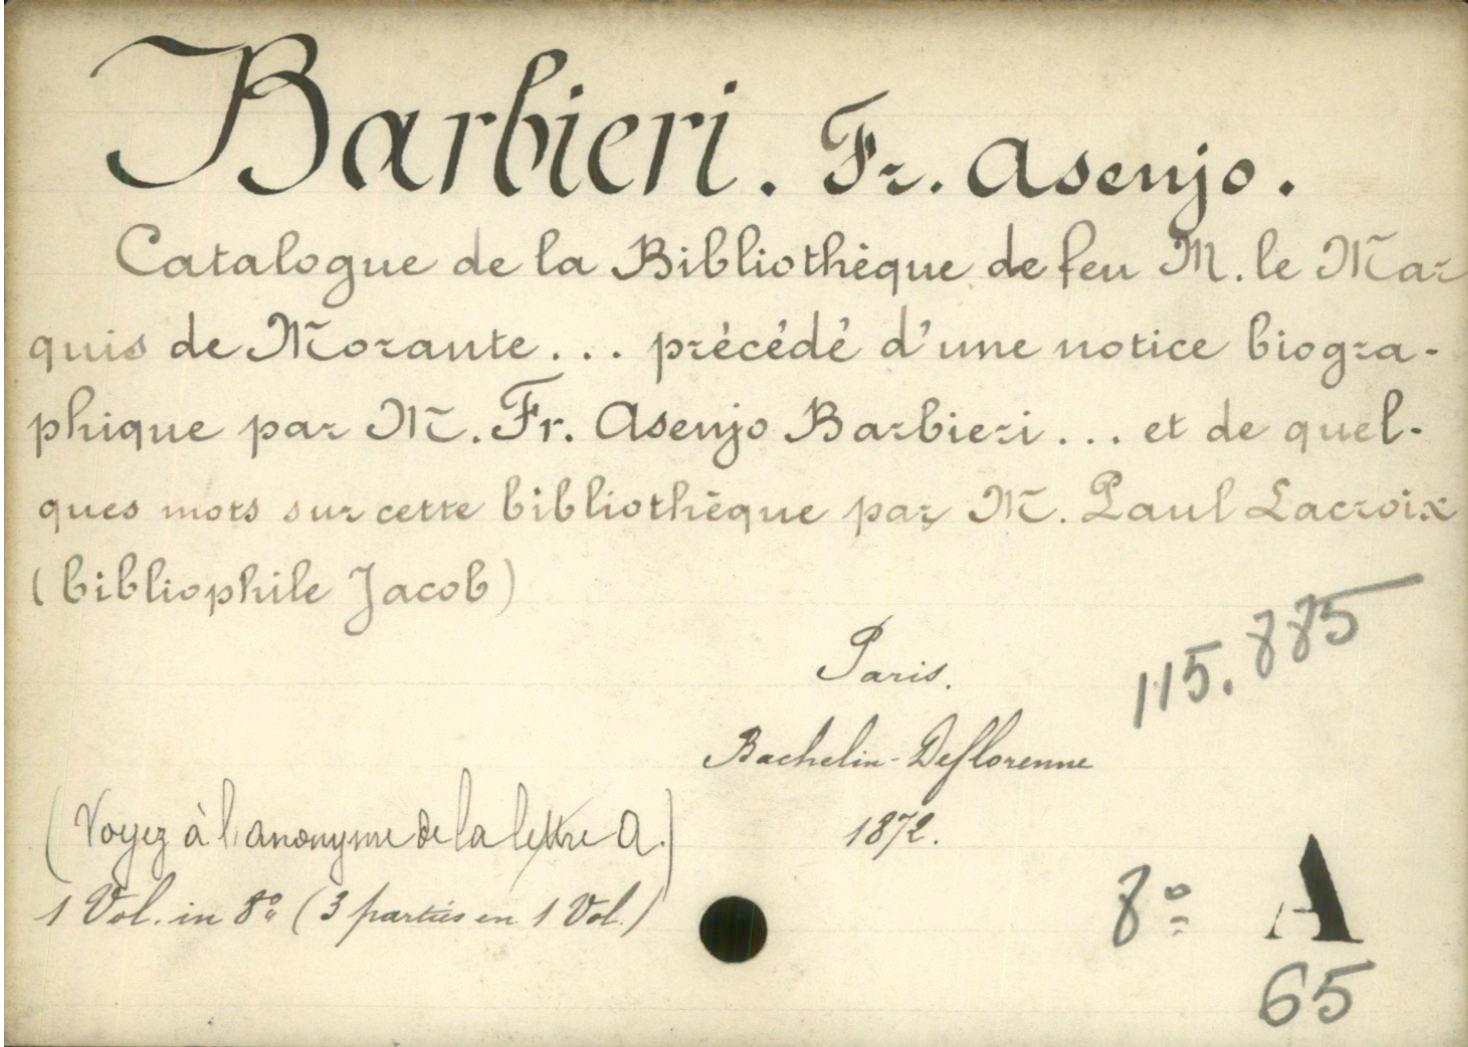 Barbieri. Fr. Asenjo.
Catalogue de la Bibliothèque de feu M. le Mar
quis de Morante... précédé d'une notice biogra-
phique par M. Fr. Asenjo Barbieri... et de quel-
ques mots sur cette bibliothèque par M. Paul Lacroix
(bibliophile Jacob)
Paris.
115.885
Bachelin-Deflorenne
1872.
(Voyez à l'anonyme de la lettre A.)
1 Vol. in 8º (3 parties en 1 Vol.)
8º A
65